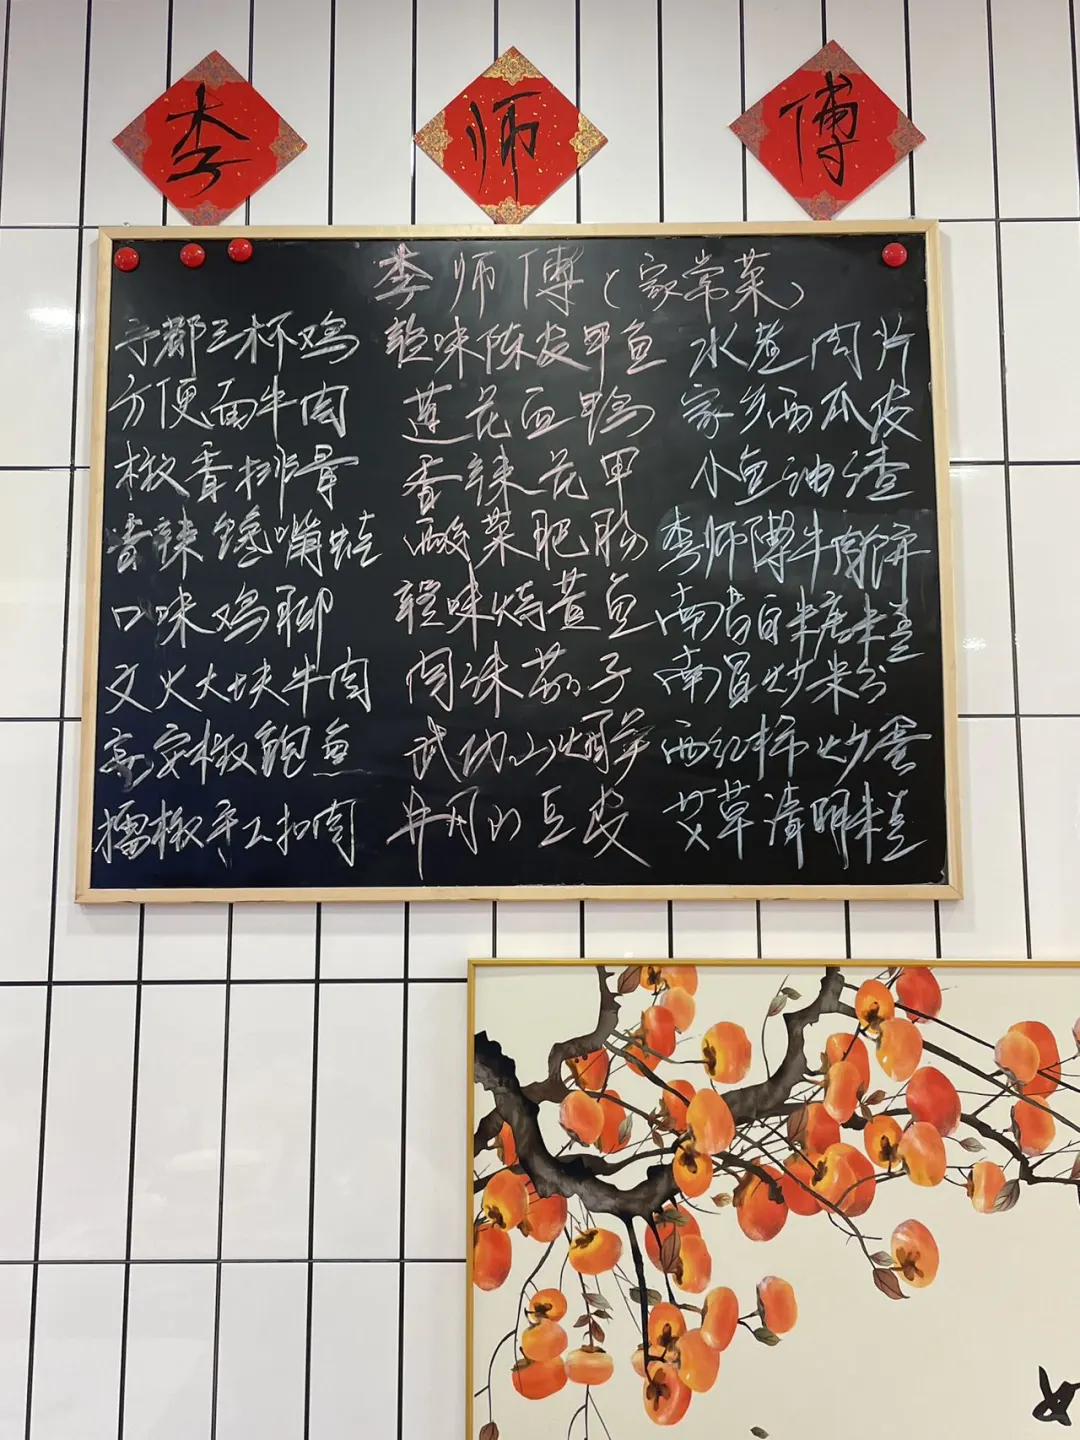 李 师 傅
李师傅(家常菜)
宁都三杯鸡
方便面牛肉
椒香排骨
香辣馋嘴蛙
口味鸡脚
文火大块牛肉
高安椒鲍鱼
擂椒手工扣肉
陈皮甲鱼
莲花血鸭
香辣花甲
酸菜肥肠
味烧黄鱼
肉沫茄子
武功山
井冈山豆皮
水煮肉片
家乡西瓜皮
小鱼油渣
李师傅牛肉饼
南昌白糖米
南昌炒米粉
西红柿炒蛋
艾草清明